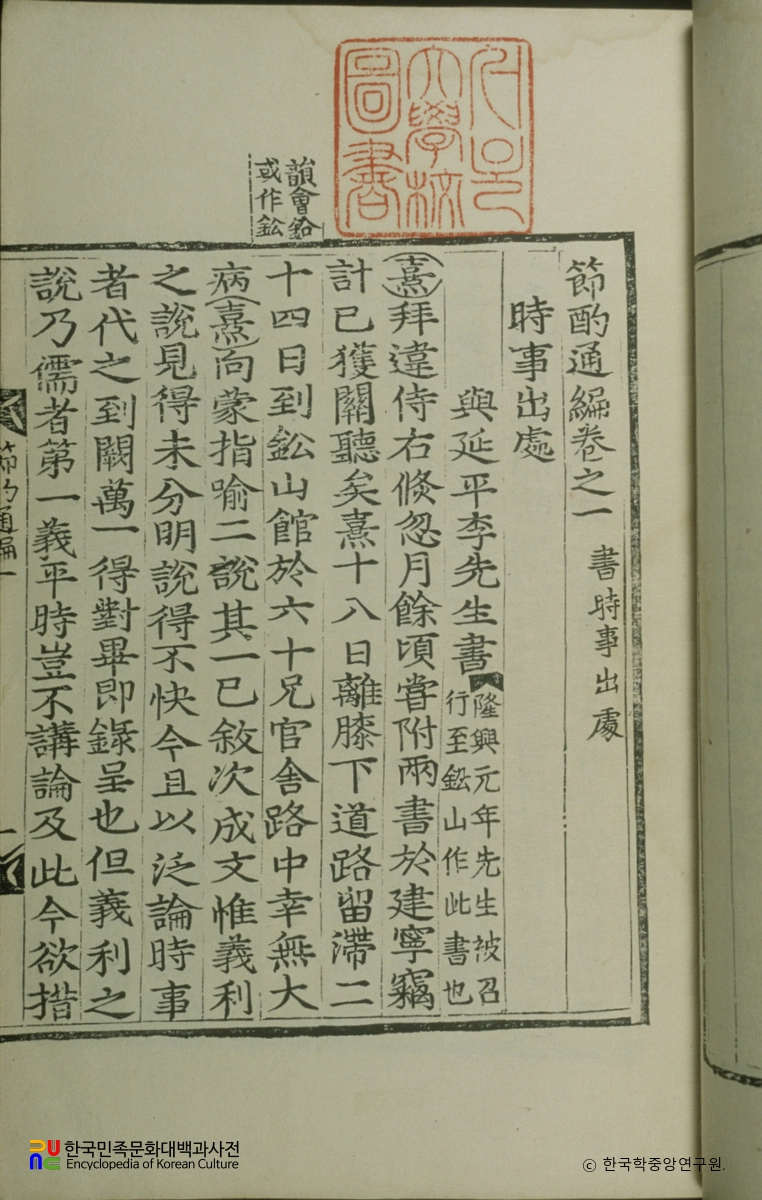 서울大學校圖書
韻會鉛
或作鈆
節酌通編卷之一 書時事出處
時事出處
與延平李先生書
隆興元年先生被召
行至鈆山作此書也
(熹)拜違侍右倏忽月餘頃嘗附兩書於建寧竊
計已獲關聽矣熹十八日離膝下道路留滯二
十四日到鈆山館於六十兄官舍路中幸無大
病(熹)向蒙指喻二說其一已敘次成文惟義利
之說見得未分明說得不快今且以泛論時事
者代之到闕萬一得對畢即錄呈也但義利之
說乃儒者第一義平時豈不講論及此今欲措
節酌通編一
한국민족문화대백과사전
Encyclopedia of Korean Culture
ⓒ 한국학중앙연구원.